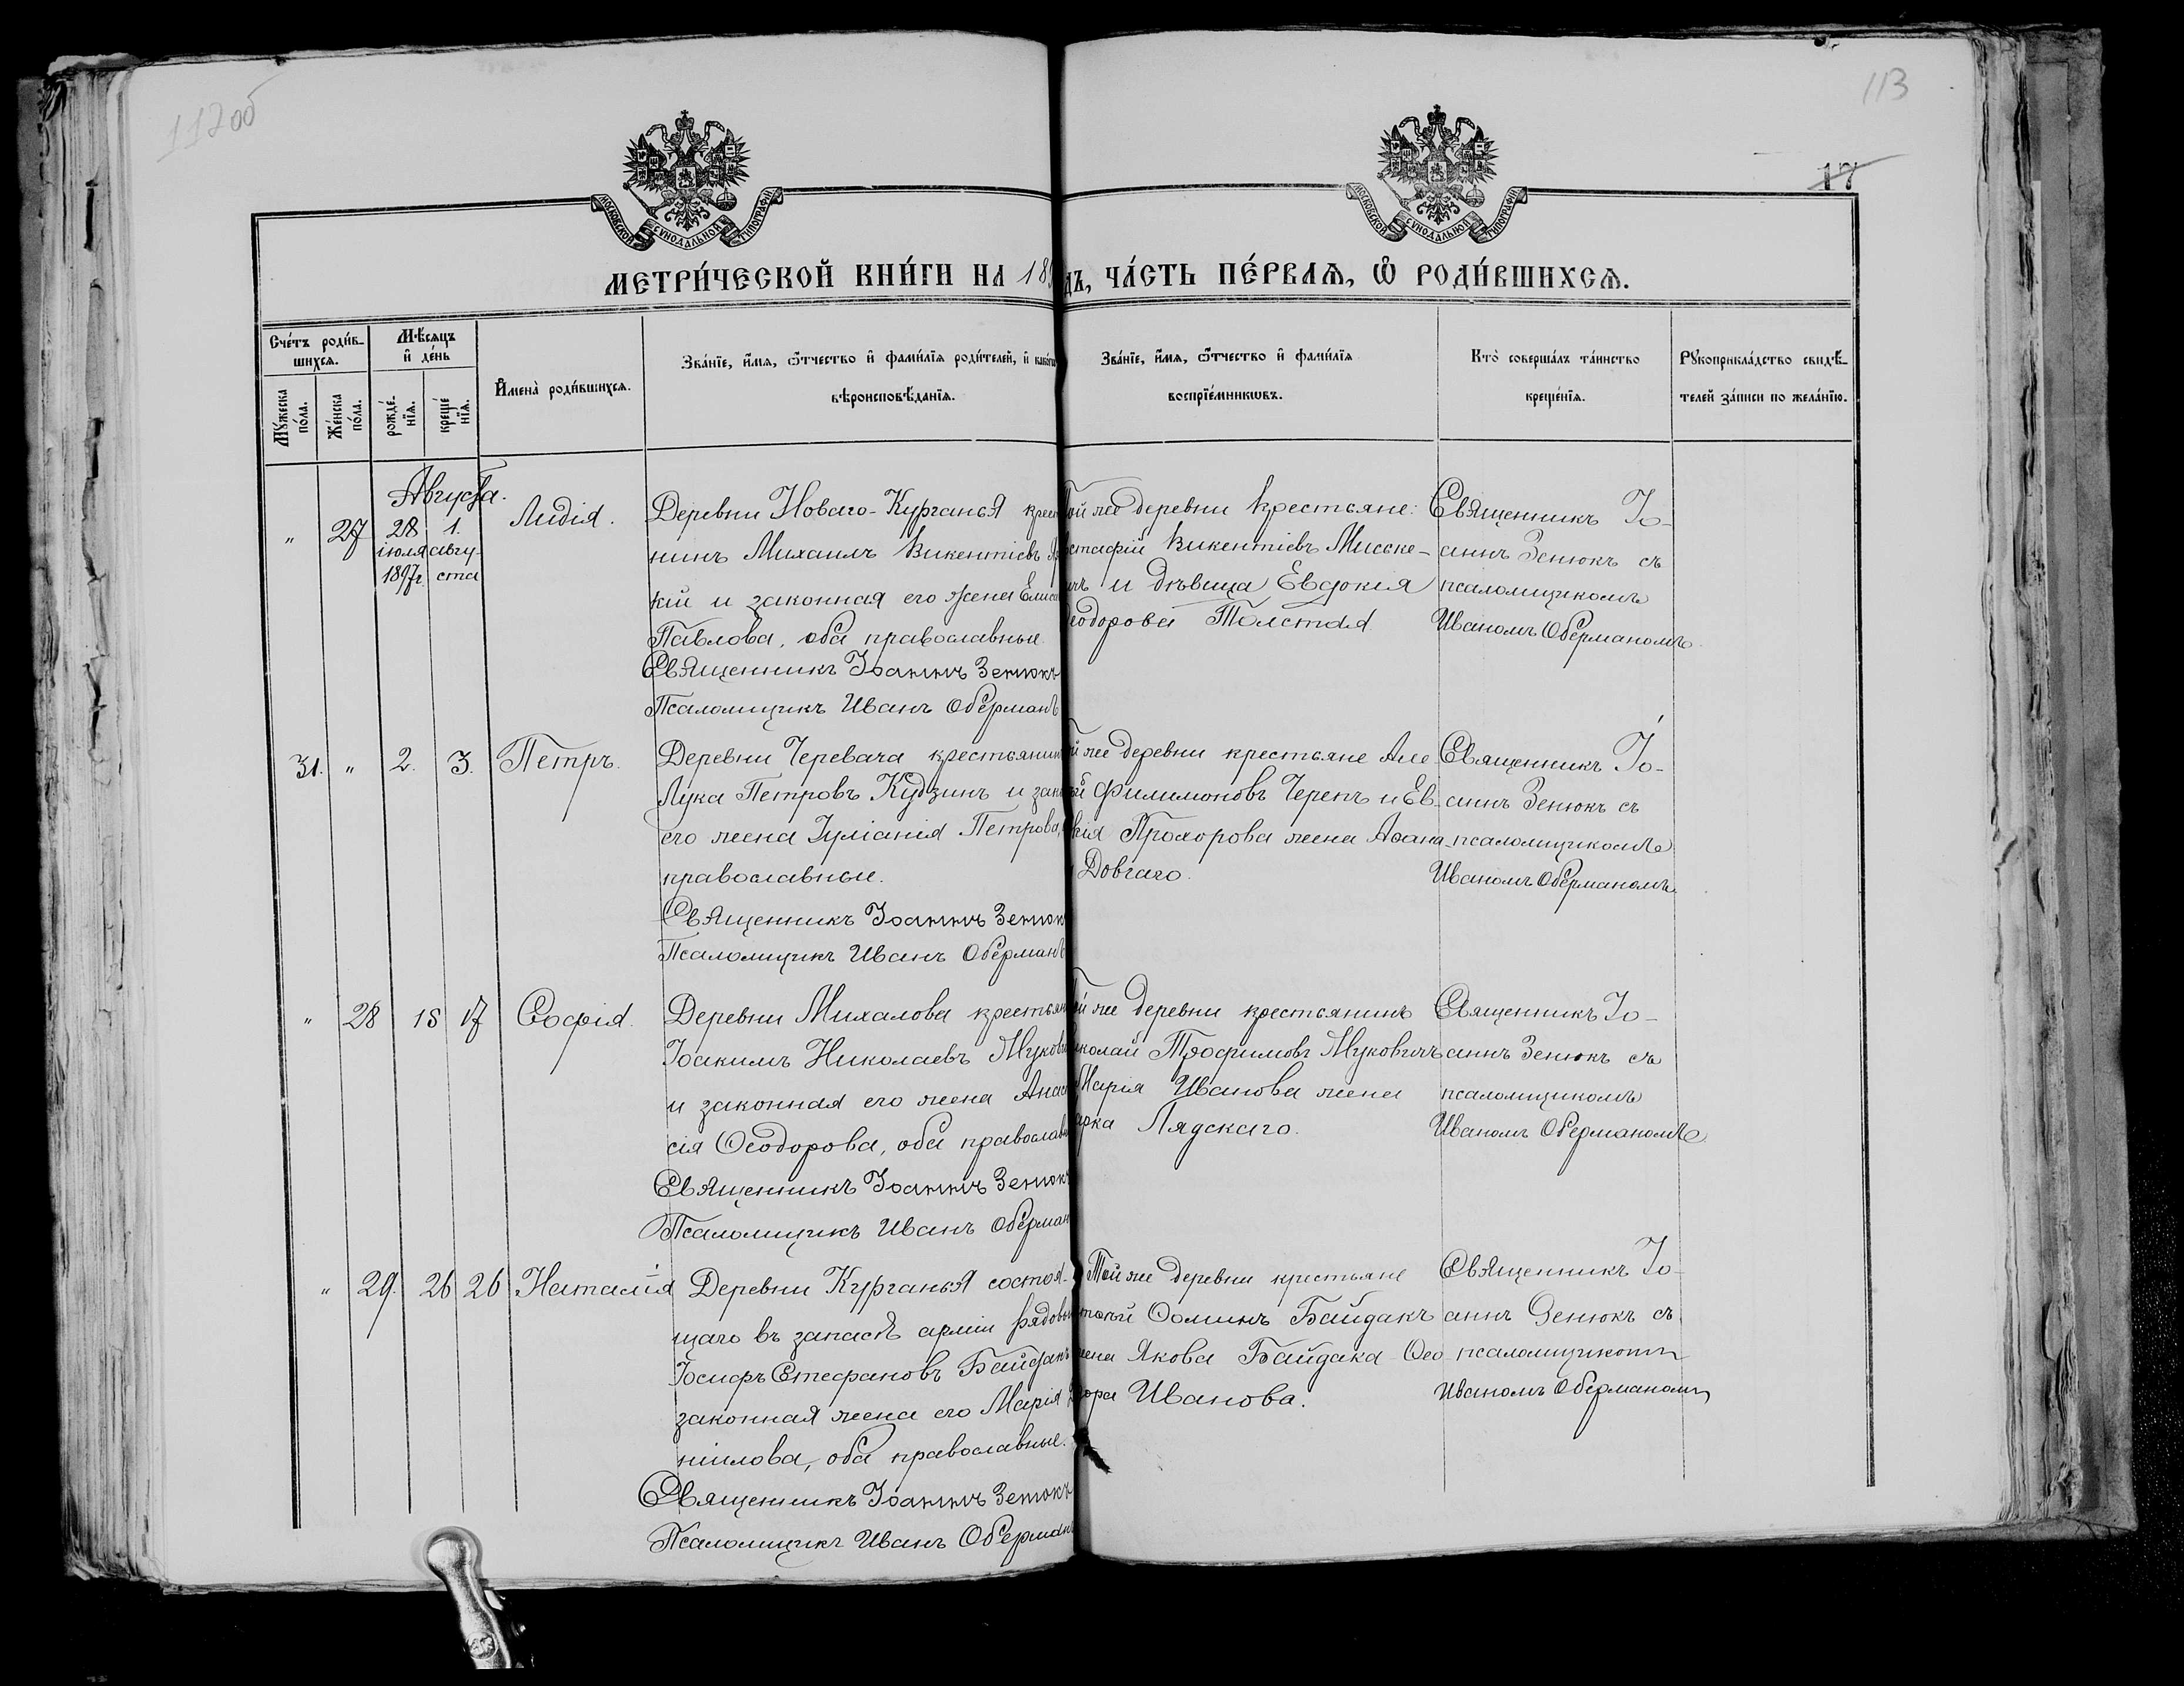 112 об
113
17
МОСКОВСКОЙ СѴНОДАЛЬНОЙ ТИПОГРАФІИ
МОСКОВСКОЙ СѴНОДАЛЬНОЙ ТИПОГРАФІИ
МЕТРИ́ЧЕСКОЙ КНИ́ГИ НА 189
дъ, ЧА́СТЬ ПЕ́РВАѦ, Ѡ҆ РОДИ́ВШИХСѦ.
Сче́тъ роди́в-
шихся.
Мѣ́сяцъ
и҆ де́нь
Мꙋ́жеска
по́ла.
Же́нска
по́ла.
рожде́-
нїя.
креще́
нїя.
И҆мена̀ роди́вшихся.
Зва́нїе, и҆́мя, ѻ҆́тчество и҆ фами́лїя роди́телей, и҆
вѣроисповѣ́данїя.
Зва́нїе, и҆́мя, ѻ҆́тчество и҆ фами́лїя
воспрїе́мникѡвъ.
Кто̀ соверша́лъ та́инство
креще́нїя.
Рꙋкоприкла́дство свидѣ́-
телей за́писи по жела́нїю.
Августа.
" 27 28 іюля 1897г. 1. авгу-
ста
Лидія.
Деревни Новаго-Курганья крест
нинъ Михаилъ Викентіевъ
кій и законная его жена Елиса
Павлова, оба православные.
Священникъ Іоаннъ Зенюкъ
Псаломщикъ Иванъ Оберманъ
той же деревни крестьяне:
стафій Викентіевъ Миске-
чъ и дѣвица Евдокія
еодорова Толстая
Священникъ Іо-
аннъ Зенюкъ съ
псаломщикомъ
Иваномъ Оберманомъ.
31. " 2. 3. Петръ.
Деревни Черевача крестьянин
Лука Петровъ Кудзинъ и зак
его жена Іуліанія Петрова,
православные.
Священникъ Іоаннъ Зенюк
Псаломщикъ Иванъ Оберманъ
й же деревни крестьяне Але
ѣй Филимоновъ Черепъ и Ев-
кія Прохорова жена Аѳана-
Довгаго.
Священникъ Іо-
аннъ Зенюкъ съ
псаломщикомъ
Иваномъ Оберманомъ
" 28 15 17 Софія.
Деревни Михалова крестьян
Іоакимъ Николаевъ Мукови
и законная его жена Анаст
сія Ѳеодорова, оба православ
Священникъ Іоаннъ Зенюкъ
Псаломщикъ Иванъ Оберман
ой же деревни крестьянинъ
иколай Трофимовъ Муковичъ
Марія Иванова жена
арка Лядскаго.
Священникъ Іо-
аннъ Зенюкъ съ
псаломщикомъ
Иваномъ Оберманомъ
" 29. 26 26 Наталія
Деревни Курганья состоя-
щаго въ запасѣ арміи рядовы
Іосифъ Стефановъ Байдакъ
законная жена его Марія
ніилова, оба православные.
Священникъ Іоаннъ Зенюкъ
Псаломщикъ Иванъ Оберман
Той же деревни крестьяне
Ѳоминъ Байдакъ
жена Якова Байдака Ѳео-
дора Иванова.
Священникъ Іо-
аннъ Зенюкъ съ
псаломщикомъ
Иваномъ Оберманомъ